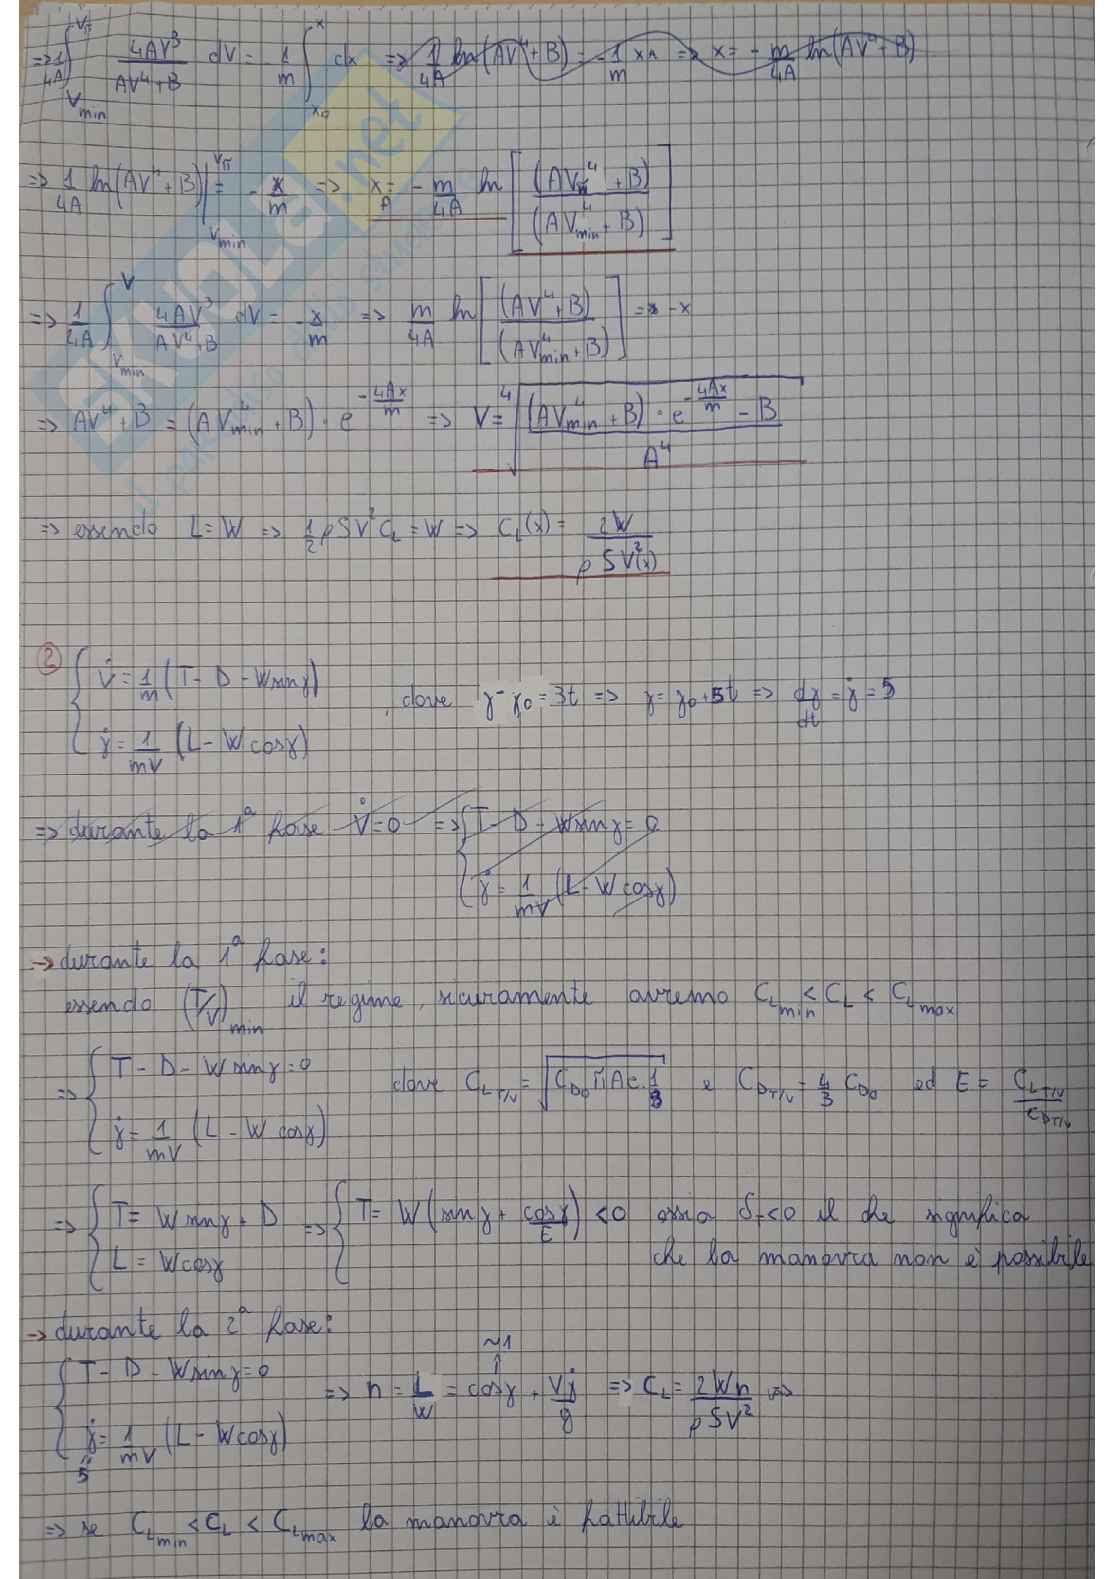 => 1/4A ∫_{Vmin}^{Vπ} 4AV³/(AV⁴+B) dV = -1/m ∫_{x0}^{x} dx => 1/4A ln(AV⁴+B) = -1/m x_A => x = -m/4A ln(AV⁴+B)
=> 1/4A ln(AV⁴+B) |_{Vmin}^{Vπ} = -x/m => x_A = -m/4A ln[(AVπ⁴+B)/(AV⁴min+B)]
=> 1/4A ∫_{Vmin}^{V} 4AV³/(AV⁴+B) dV = -x/m => m/4A ln[(AV⁴+B)/(AV⁴min+B)] = -x
=> AV⁴+B = (AV⁴min+B)·e^{-4Ax/m} => V = ⁴√(((AV⁴min+B)·e^{-4Ax/m} - B)/A⁴)
=> essendo L=W => 1/2 ρSV²C_L = W => C_L(x) = 2W/(ρSV²(x))
② { V̇ = 1/m (T-D-Wsinγ)
, dove γ-γ₀ = 3t => γ = γ₀+5t => dγ/dt = γ̇ = 5
γ̇ = 1/mV (L-Wcosγ)
=> durante la 1ª fase V̇=0 => { T-D-Wsinγ=0
γ̇ = 1/mV (L-Wcosγ)
→ durante la 1ª fase:
essendo (T/V)min il regime, sicuramente avremo C_Lmin < C_L < C_Lmax
=> { T-D-Wsinγ=0 dove C_L T/V = √(C_D0 πAe·1/3) e C_D T/V = 4/3 C_D0 ed E = C_L T/V / C_D T/V
γ̇ = 1/mV (L-Wcosγ)
=> { T = Wsinγ+D => { T = W(sinγ + cosγ/E) <0 ossia δ_T<0 il che significa
L = Wcosγ che la manovra non è possibile
→ durante la 2ª fase:
{ T-D-Wsinγ=0 ~1
=> n = L/W = cosγ + Vγ̇/g => C_L = 2Wn/(ρSV²) =>
γ̇ = 1/mV (L-Wcosγ)
5
=> se C_Lmin < C_L < C_Lmax la manovra è fattibile